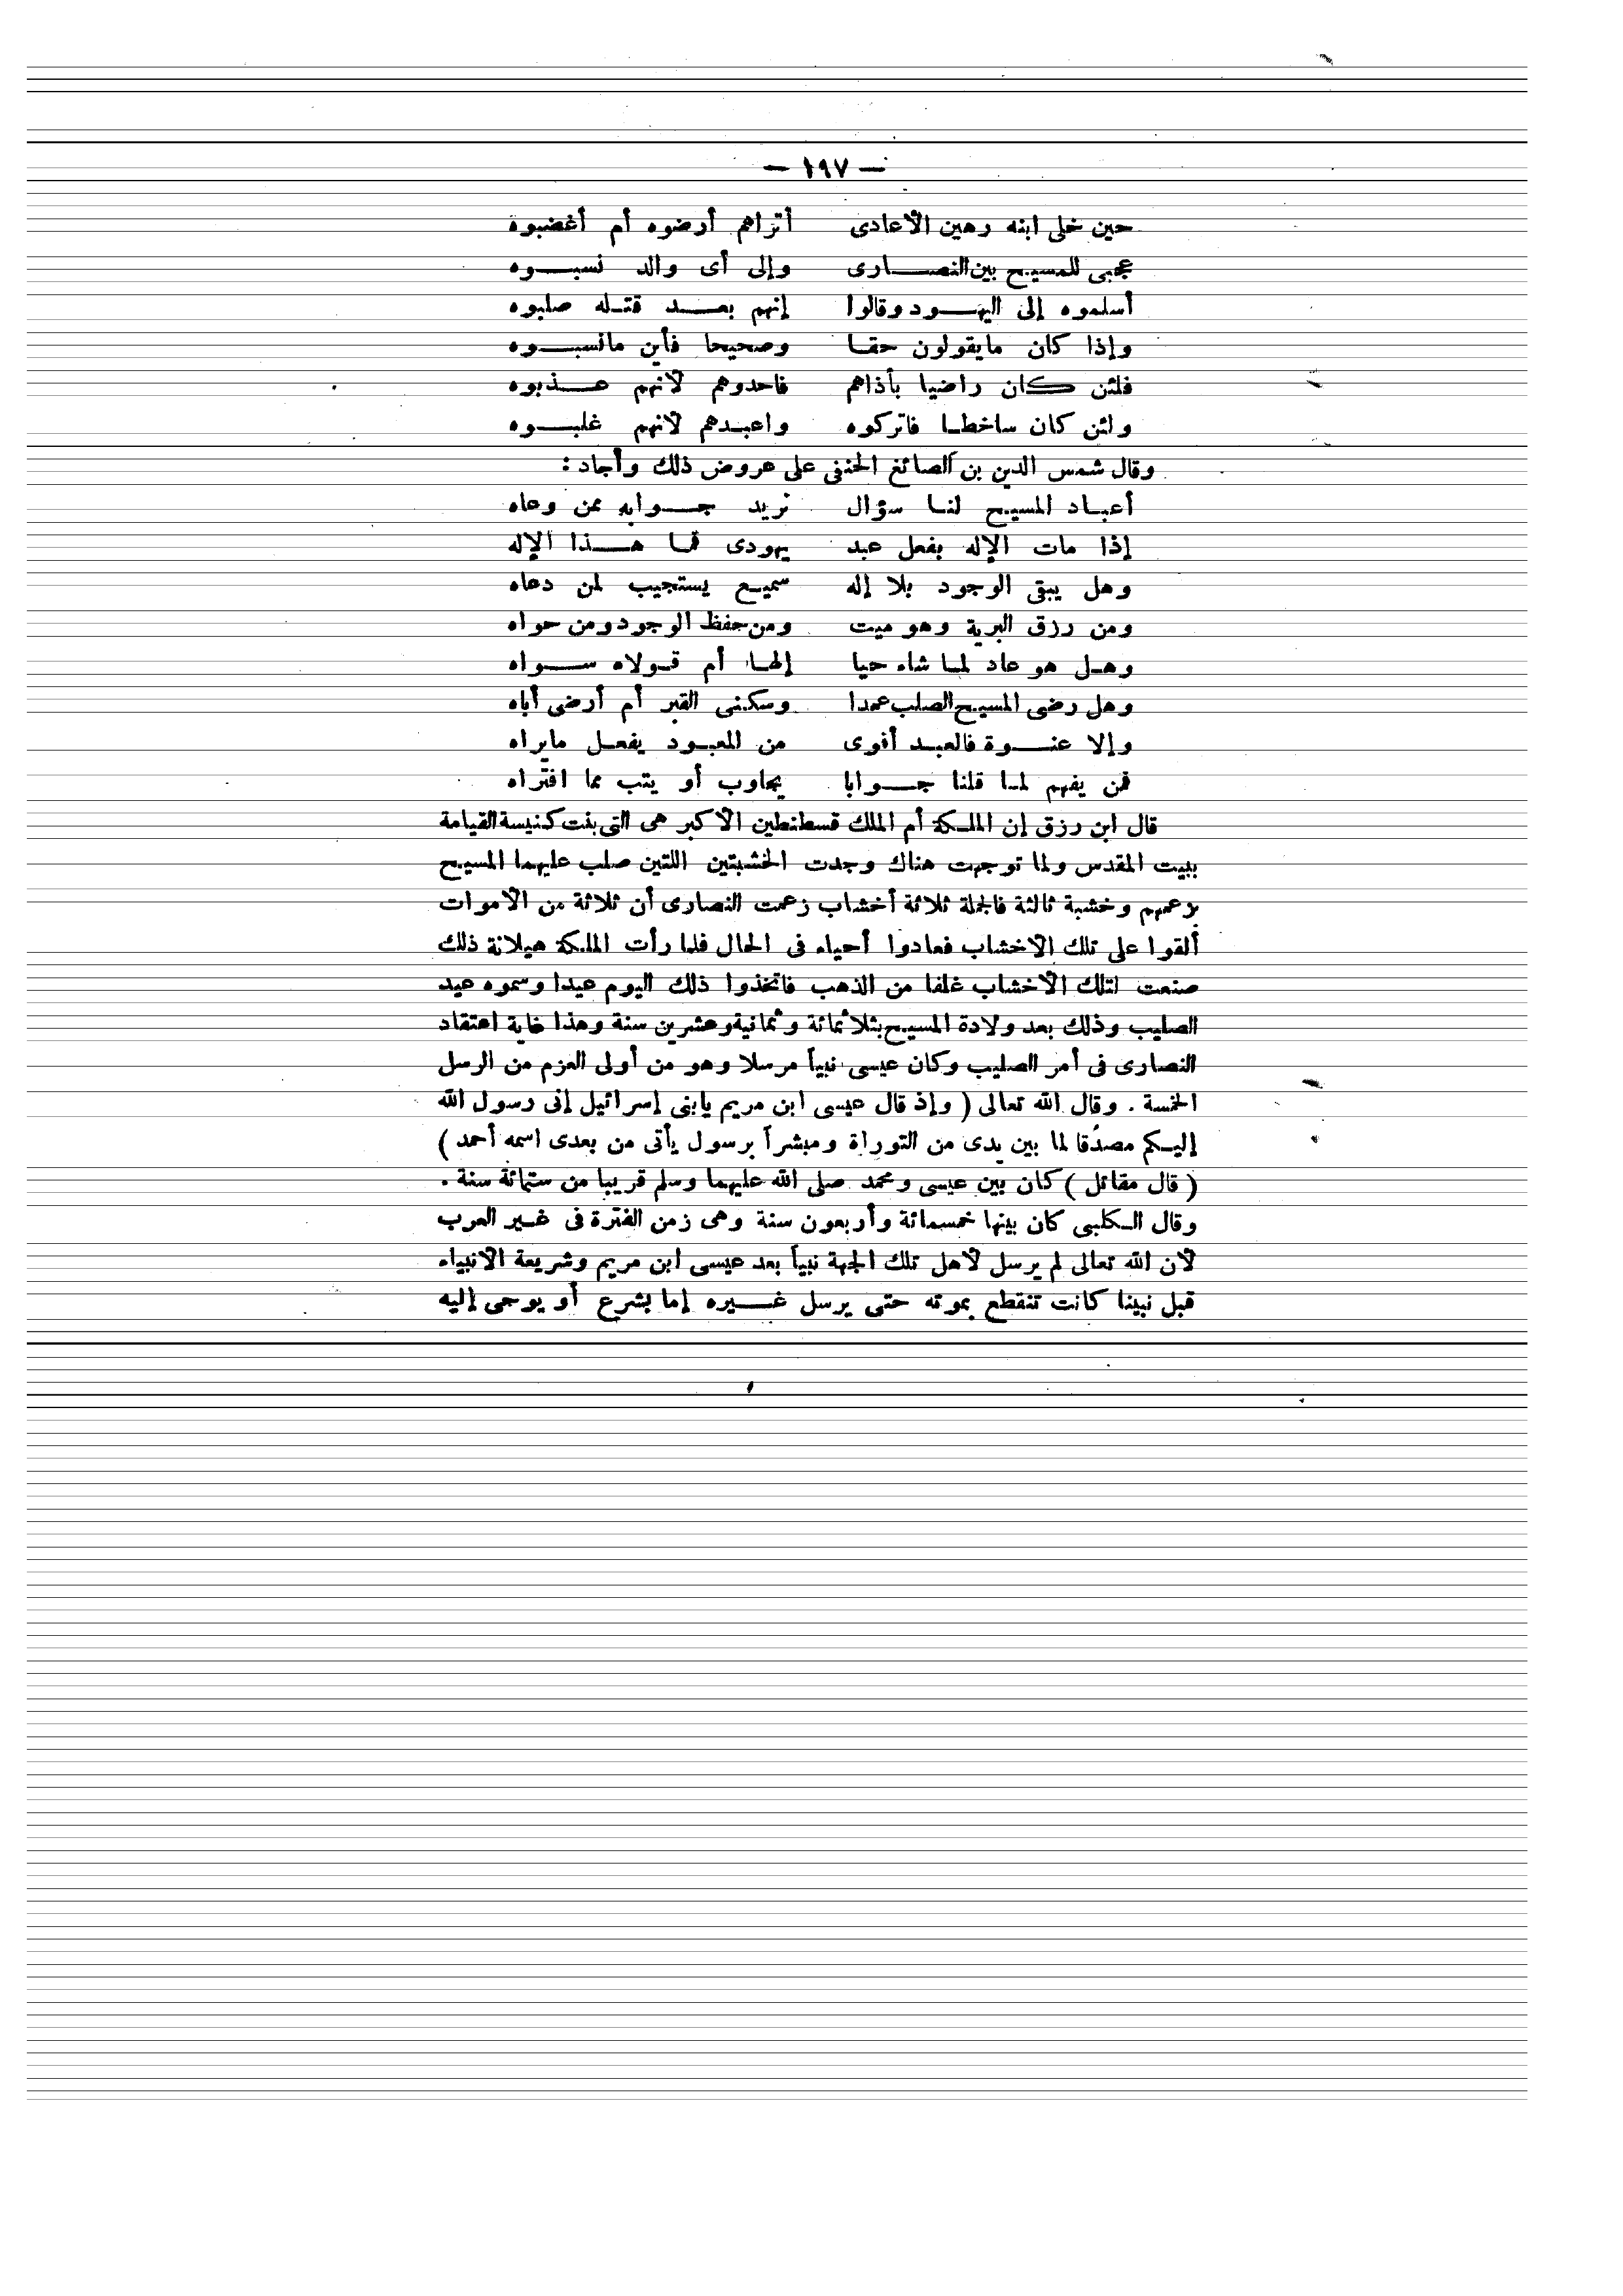 — ١٩٧ —
حين خلى ابنه رهين الأعادى أتراهم أرضوه أم أغضبوه
عجبى للمسيح بين النصارى وإلى أى والد نسبوه
أسلموه إلى اليهود وقالوا إنهم بعد قتله صلبوه
وإذا كان مايقولون حقا وصحيحا فأين مانسبوه
فلئن كان راضيا بأذاهم فاحدوهم لانهم عذبوه
ولئن كان ساخطا فاتركوه واعبدهم لانهم غلبوه
وقال شمس الدين بن الصائغ الحنفى على عروض ذلك وأجاد :
أعباد المسيح لنا سؤال نريد جوابه ممن وعاه
إذا مات الإله بفعل عبد يهودى فما هذا الإله
وهل يبقى الوجود بلا إله سميع يستجيب لمن دعاه
ومن رزق البرية وهو ميت ومن حفظ الوجود ومن حواه
وهل هو عاد لما شاء حيا إلها أم قولاه سواه
وهل رضى المسيح الصلب عمدا وسكنى القبر أم أرضى أباه
وإلا عنوة فالعبد أقوى من المعبود يفعل مايراه
فمن يفهم لما قلنا جوابا يجاوب أو يتب مما افتراه
قال ابن رزق إن الملكة أم الملك قسطنطين الأكبر هى التى بنت كنيسة القيامة
ببيت المقدس ولما توجهت هناك وجدت الخشبتين اللتين صلب عليهما المسيح
بزعمهم وخشبة ثالثة فالجملة ثلاثة أخشاب زعمت النصارى أن ثلاثة من الأموات
ألقوا على تلك الاخشاب فعادوا أحياء فى الحال فلما رأت الملكة هيلانة ذلك
صنعت لتلك الأخشاب غلفا من الذهب فاتخذوا ذلك اليوم عيدا وسموه عيد
الصليب وذلك بعد ولادة المسيح بثلاثمائة وثمانية وعشرين سنة وهذا غاية اعتقاد
النصارى فى أمر الصليب وكان عيسى نبياً مرسلا وهو من أولى العزم من الرسل
الخمسة . وقال الله تعالى ( وإذ قال عيسى ابن مريم يابنى إسرائيل إنى رسول الله
إليكم مصدقا لما بين يدى من التوراة ومبشراً برسول يأتى من بعدى اسمه أحمد )
( قال مقاتل ) كان بين عيسى ومحمد صلى الله عليهما وسلم قريبا من ستمائة سنة .
وقال الكلبى كان بينها خمسمائة وأربعون سنة وهى زمن الفترة فى غير العرب
لان الله تعالى لم يرسل لأهل تلك الجهة نبياً بعد عيسى ابن مريم وشريعة الانبياء
قبل نبينا كانت تنقطع بموته حتى يرسل غيره إما بشرع أو يوحى إليه